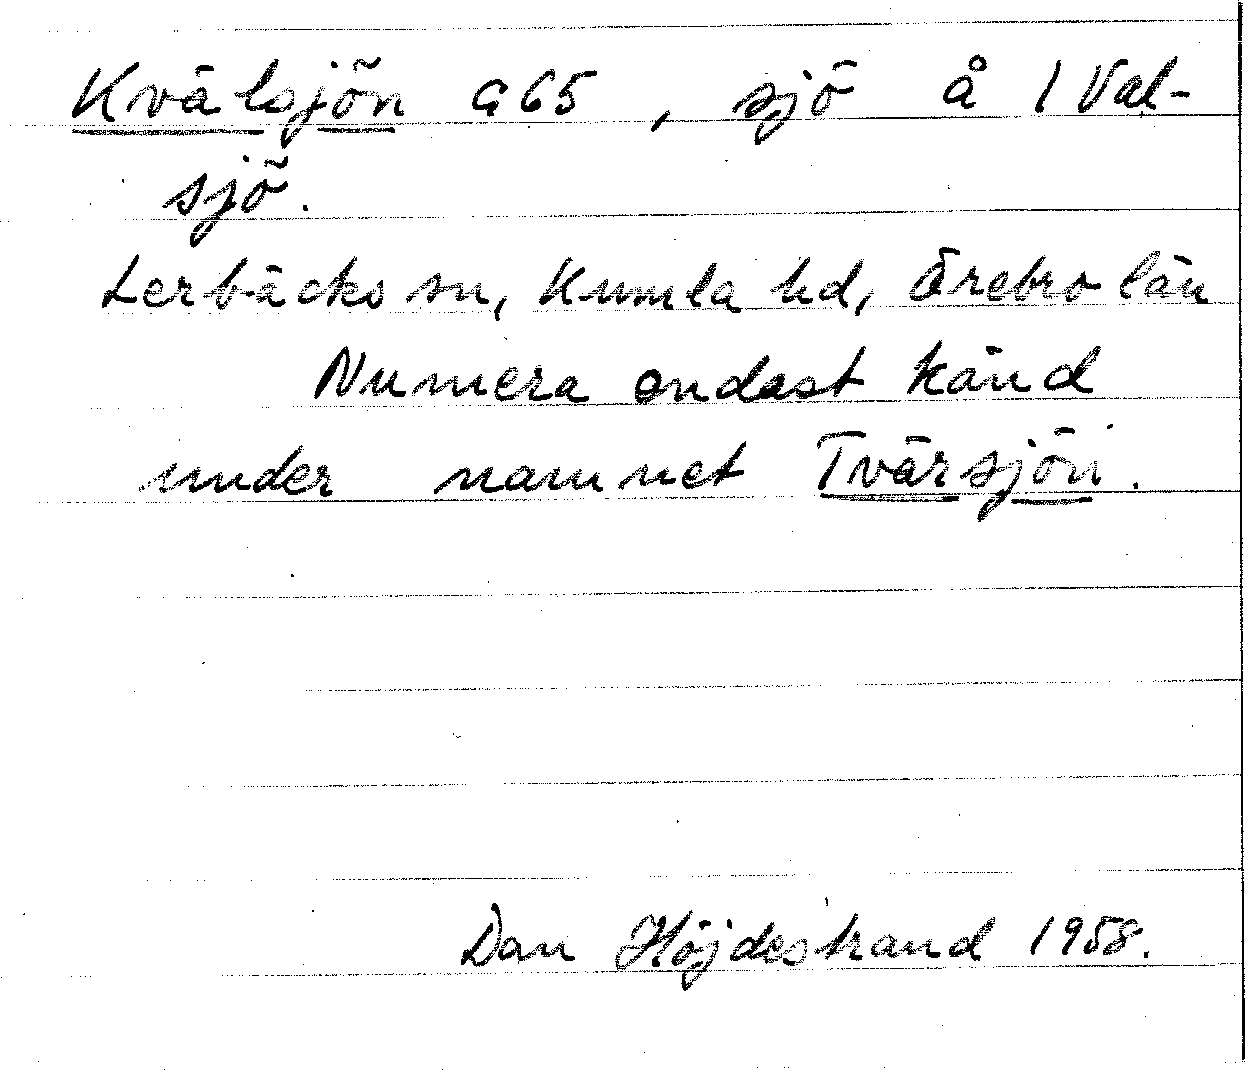 Kvälsjön a65, sjö å 1 Val-
sjö.
Lerbäcks sn, Kumla hd, Örebro län
Numera endast känd
under namnet Tvärsjön.
Dan Höjdestrand 1958.